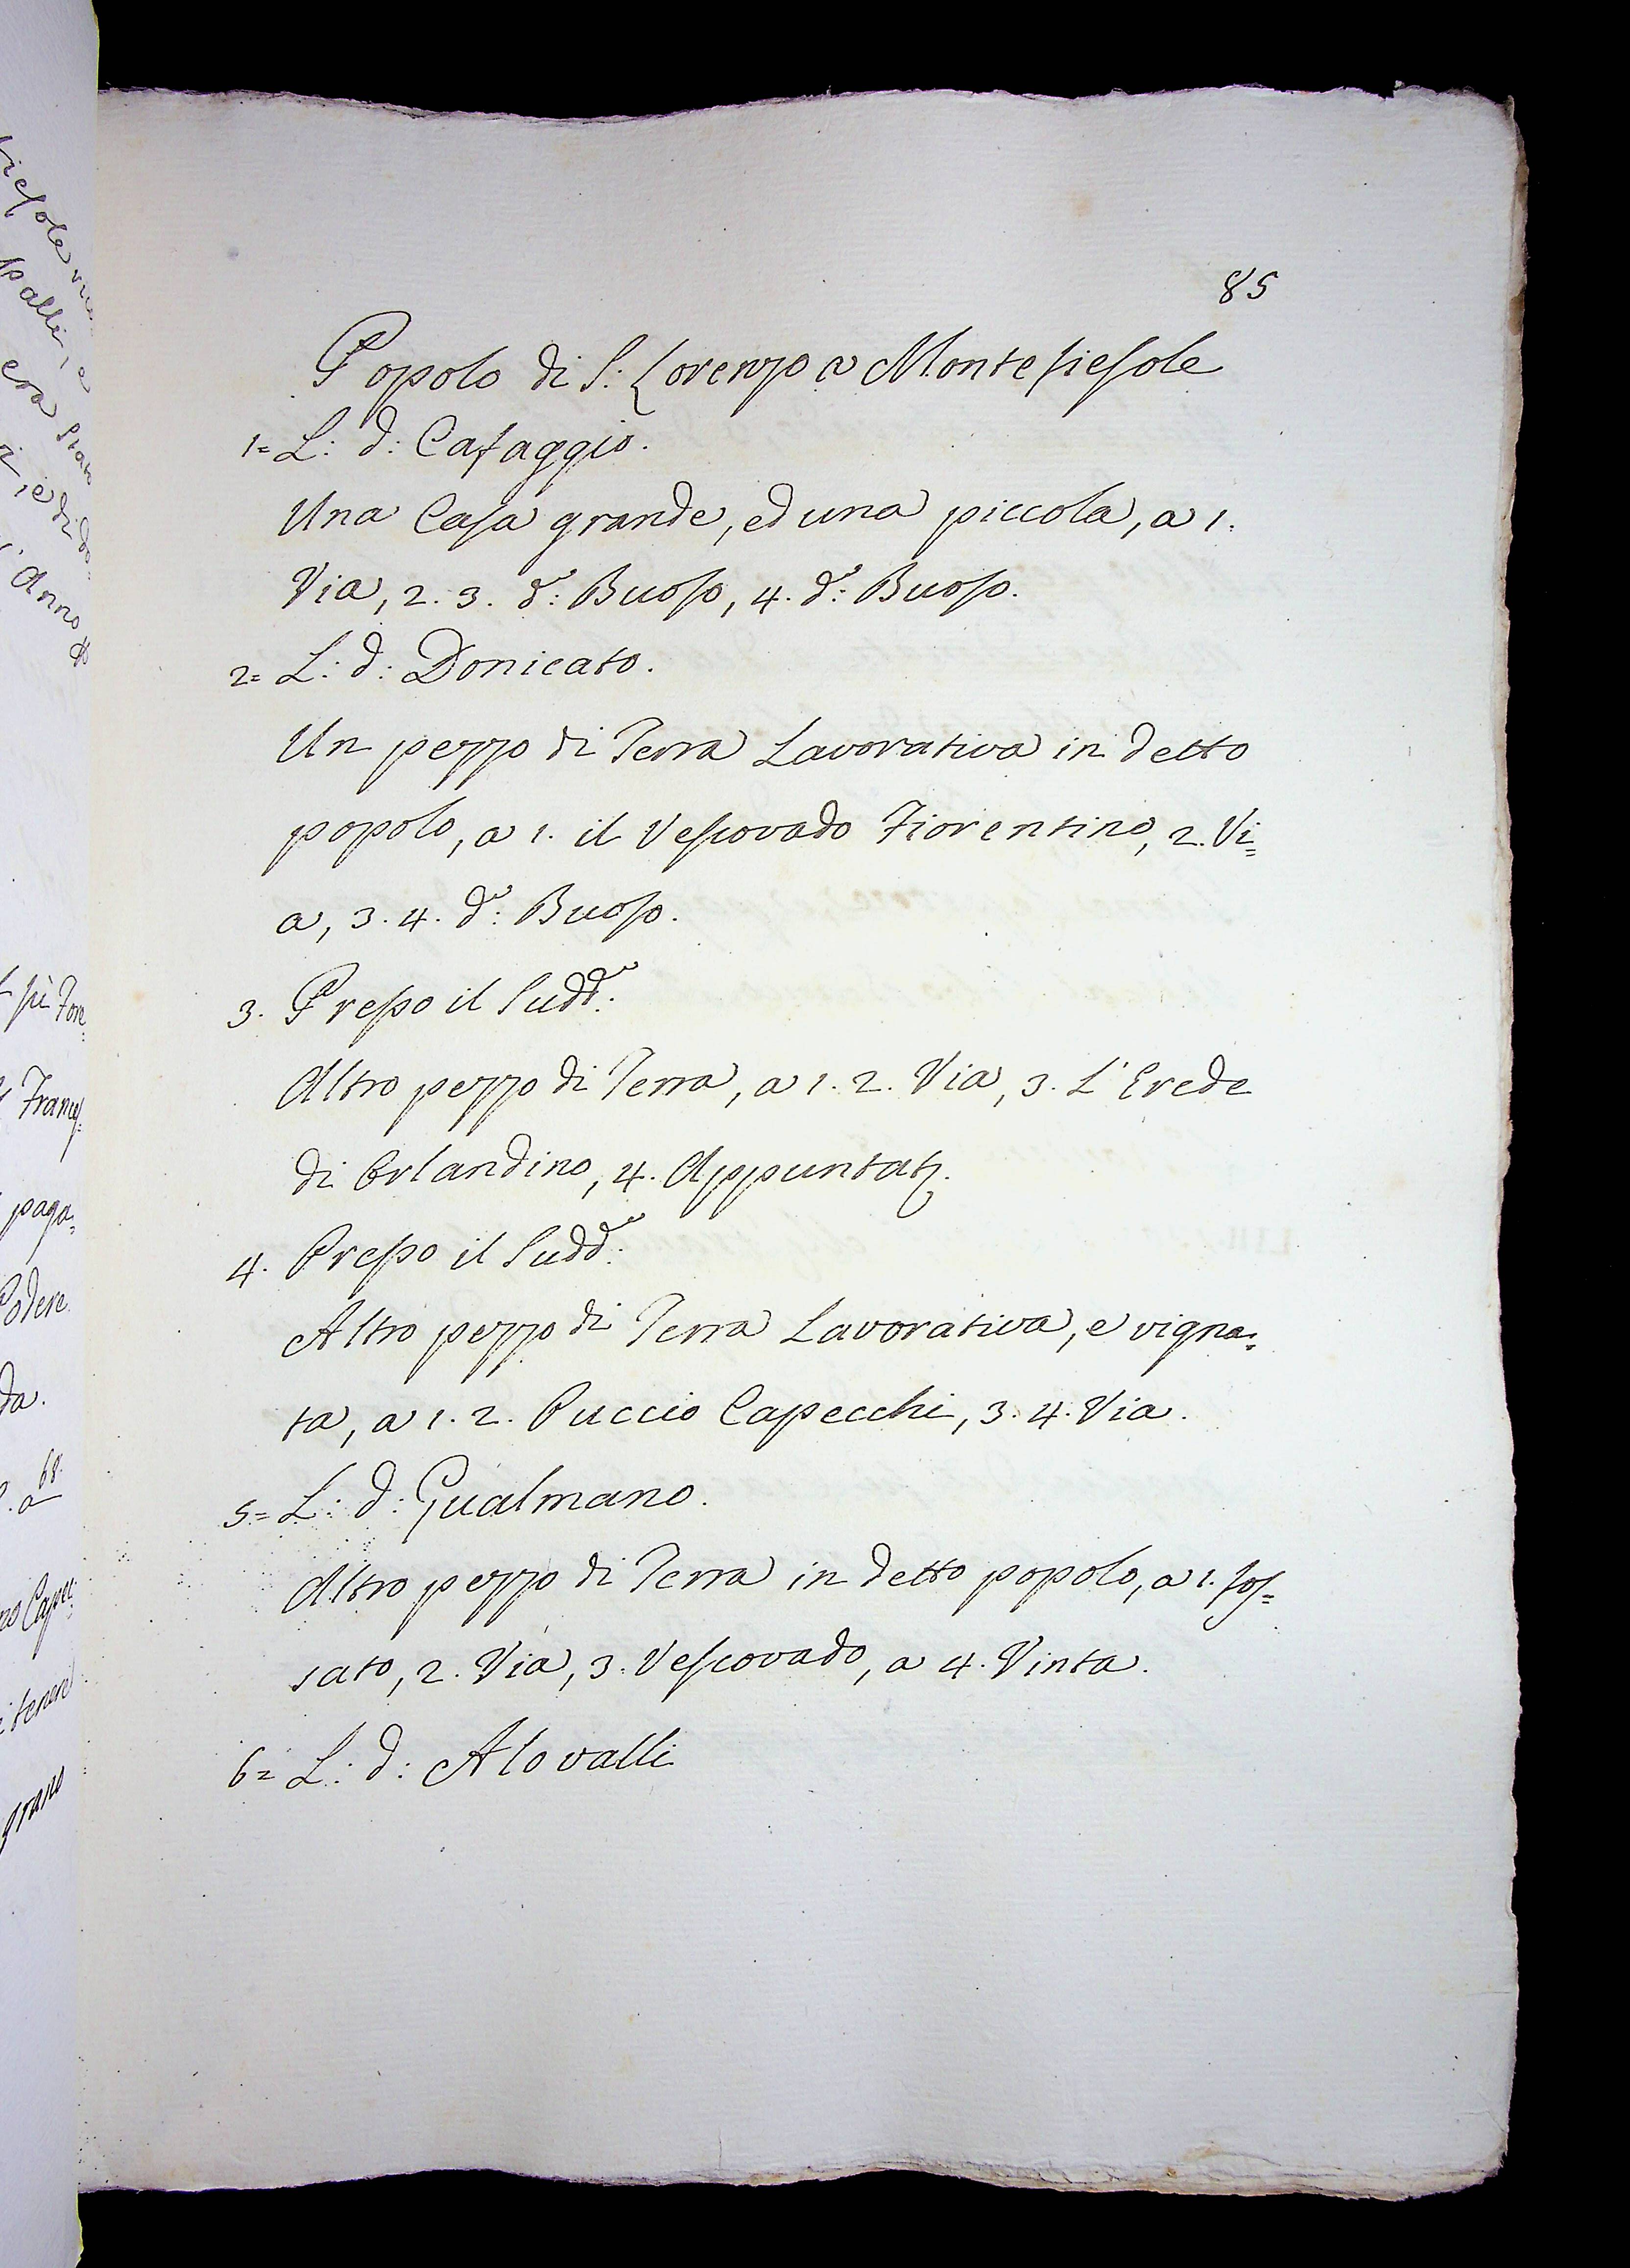 85
Popolo di S: Lorenzo a Montefiesole
1= L: d: Cafaggio.
Una Casa grande, ed una piccola, a 1.
Via, 2. 3. d.º: Buoso, 4. d.º: Buoso.
2= L: d: Donicato.
Un pezzo di Terra Lavorativa in detto
popolo, a 1. il Vescovado Fiorentino, 2. Vi=
a, 3. 4. d.º: Buoso.
3. Presso il Sudd.º:
Altro pezzo di Terra, a 1. 2. Via, 3. L'Erede
di Orlandino, 4. Appuntat
4. Presso il Sudd.º:
Altro pezzo di Terra Lavorativa, e vigna=
ta, a 1. 2. Puccio Capecchi, 3. 4. Via.
5= L: d: Gualmano.
Altro pezzo di Terra in detto popolo, a 1. fos=
sato, 2. Via, 3. Vescovado, a 4. Vinta.
6= L: d: Alovalli